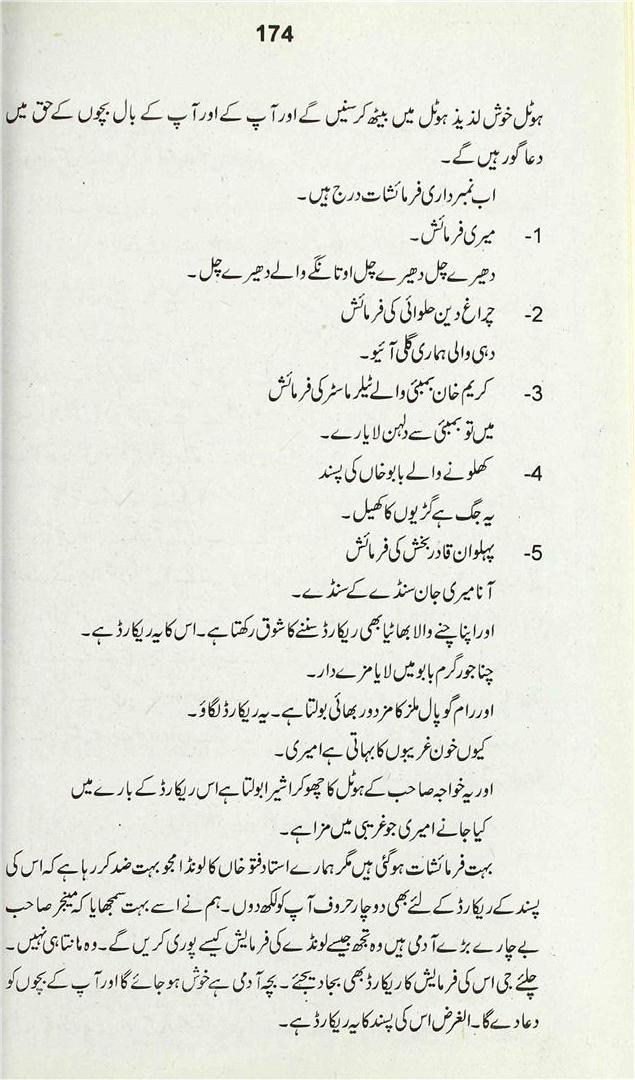 174
ہوٹل خوش لذیذ ہوٹل میں بیٹھ کر سنیں گے اور آپ کے اور آپ کے بال بچوں کے حق میں
دعا گو رہیں گے۔
اب نمبرداری فرمائشات درج ہیں۔
1- میری فرمائش۔
دھیرے چل دھیرے چل او تانگے والے دھیرے چل۔
2- چراغ دین حلوائی کی فرمائش
دہی والی ہماری گلی آئیو۔
3- کریم خان بمبئی والے ٹیلر ماسٹر کی فرمائش
میں تو بمبئی سے دلہن لایا رے۔
4- کھلونے والے بابو خاں کی پسند
یہ جگ ہے گڑیوں کا کھیل۔
5- پہلوان قادر بخش کی فرمائش
آنا میری جان سنڈے کے سنڈے۔
اور اپنا چنے والا بھاٹیا بھی ریکارڈ سننے کا شوق رکھتا ہے۔ اس کا یہ ریکارڈ ہے۔
چنا جور گرم بابو میں لایا مزے دار۔
اور رام گوپال ملز کا مزدور بھائی بولتا ہے۔ یہ ریکارڈ لگاؤ۔
کیوں خون غریبوں کا بہاتی ہے امیری۔
اور یہ خواجہ صاحب کے ہوٹل کا چھوکرا شیرا بولتا ہے اس ریکارڈ کے بارے میں
کیا جانے امیری جو غریبی میں مزا ہے۔
بہت فرمائشات ہوگئی ہیں مگر ہمارے استاد فتو خاں کا لونڈا مجو بہت ضد کر رہا ہے کہ اس کی
پسند کے ریکارڈ کے لئے بھی دو چار حروف آپ کو لکھ دوں۔ ہم نے اسے بہت سمجھایا کہ مینجر صاحب
بے چارے بڑے آدمی ہیں وہ تجھ جیسے لونڈے کی فرمایش کیسے پوری کریں گے۔ وہ مانتا ہی نہیں۔
چلئے جی اس کی فرمایش کا ریکارڈ بھی بجا دیجئے۔ بچہ آدمی ہے خوش ہو جائے گا اور آپ کے بچوں کو
دعا دے گا۔ الغرض اس کی پسند کا یہ ریکارڈ ہے۔